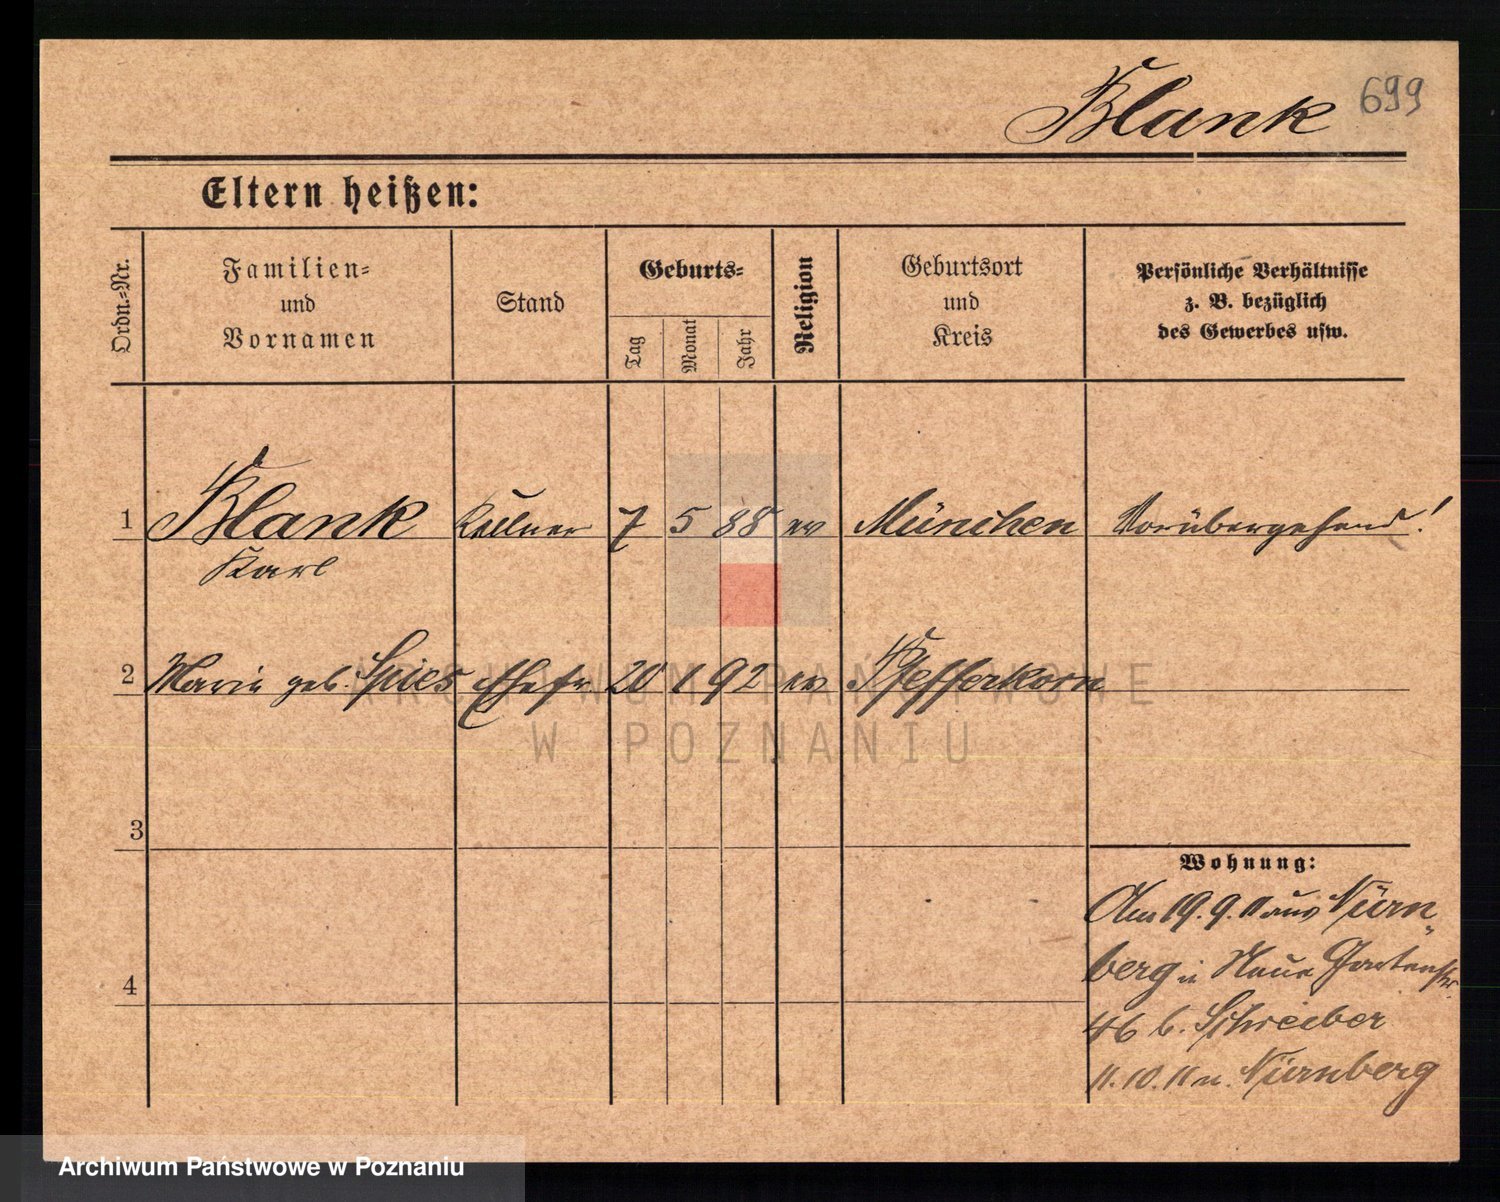 Blank 699
Eltern heißen:
Ordn.=Nr.
Familien=
und
Vornamen
Stand
Geburts=
Tag
Monat
Jahr
Religion
Geburtsort
und
Kreis
Persönliche Verhältnisse
z. B. bezüglich
des Gewerbes usw.
1 Blank Kellner 7 5 88 ev München Vorübergehend!
Karl
2 Marie geb. Spies Ehefr 20 1 92 ev Pfefferkorn
3
Wohnung:
Am 19.9.11 aus Nürn„
berg in Neue Gartenstr.
4
46 b. Schreiber
11.10.11 n. Nürnberg
ARCHIWUM PAŃSTWOWE
W POZNANIU
Archiwum Państwowe w Poznaniu